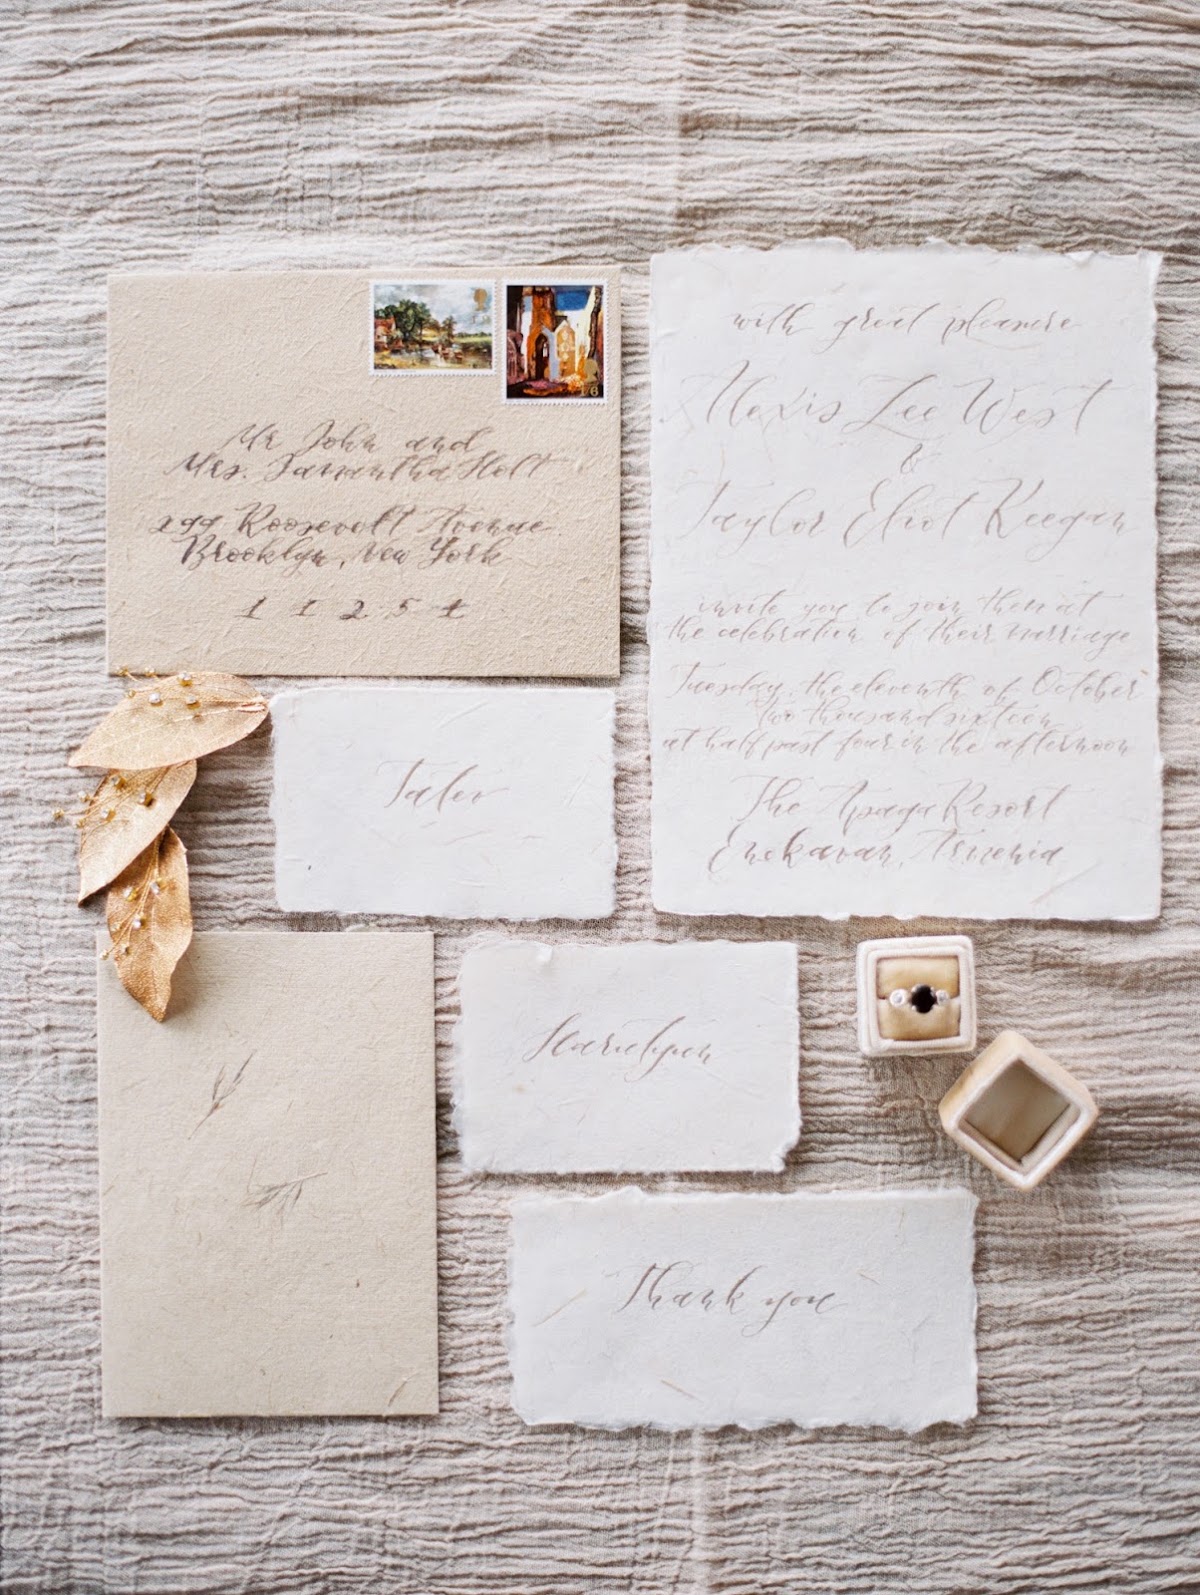 Mr John and
Mrs. Samantha Holt
299 Roosevolt Avenue
Brooklyn, New York
1 1 2 5 4
16
with great pleasure
Alexis Lee West
&
Taylor Eliot Keegan
invite you to join them at
the celebration of their marriage
Tuesday, the eleventh of October
two thousand sixteen
at half past four in the afternoon
The Apaga Resort
Enokavan, Armenia
Talev
Thank you